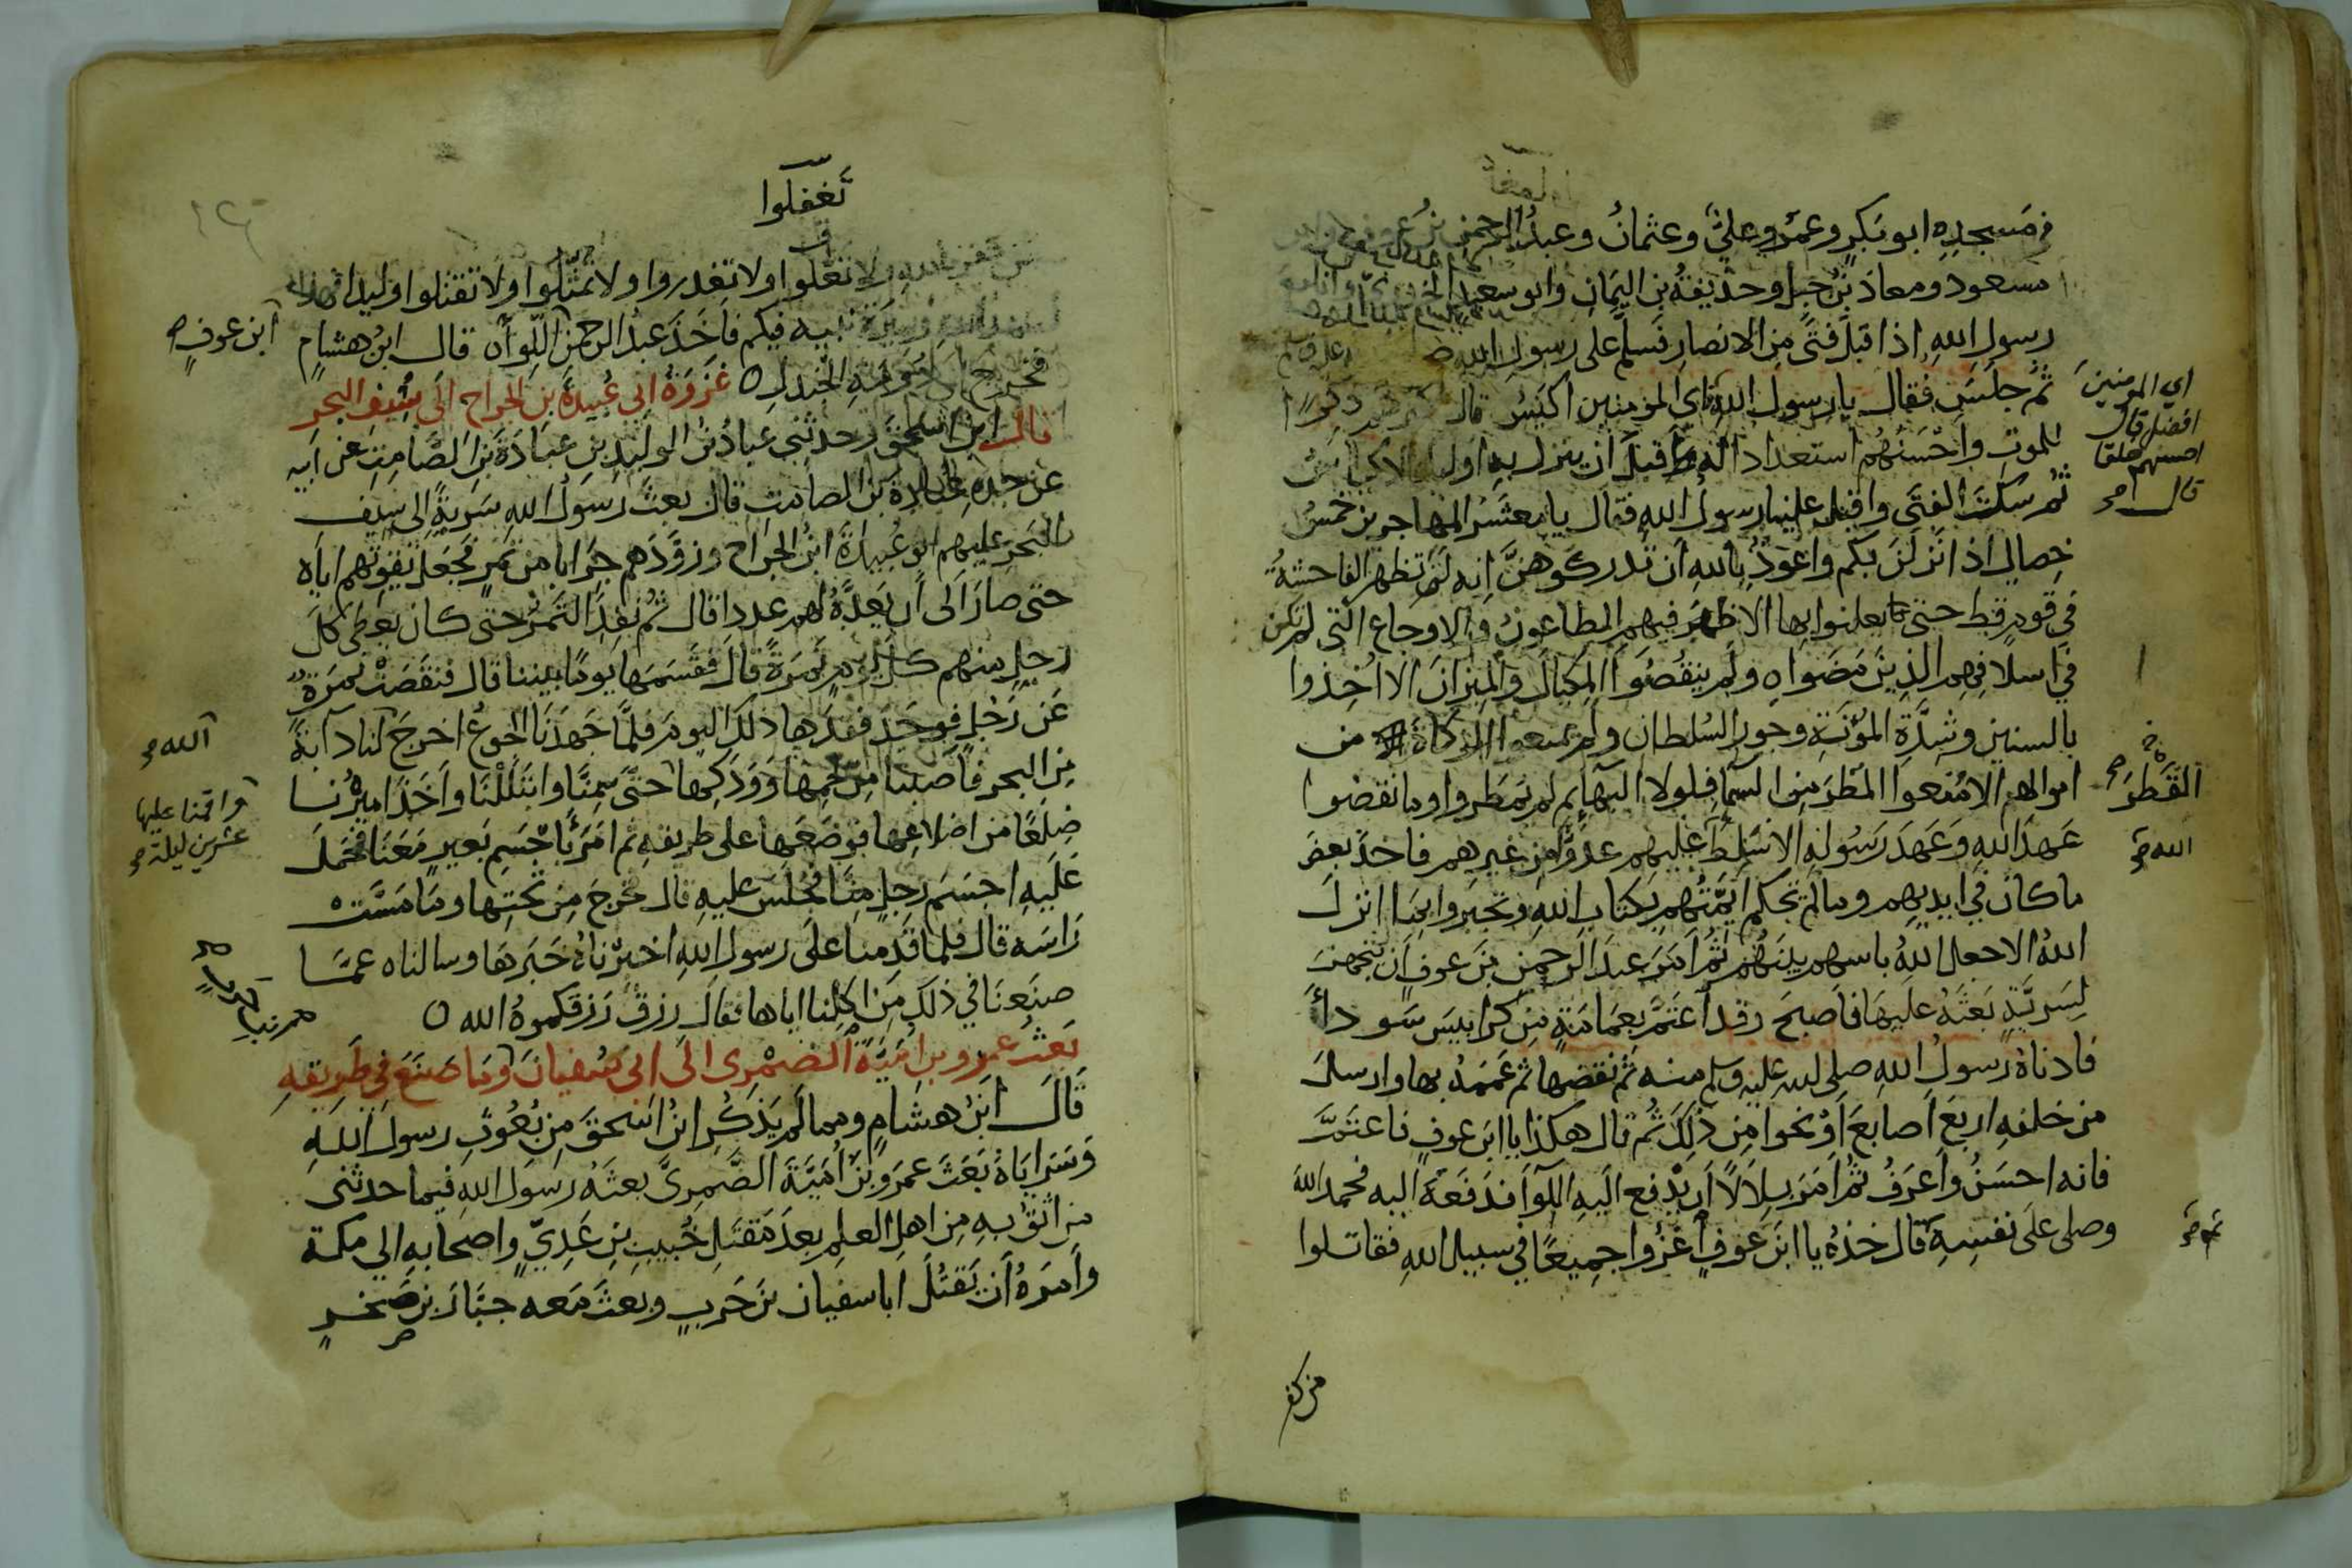 في مسجده ابو بكر وعمر وعلي وعثمان وعبد الرحمن بن عوف
مسعود ومعاذ بن جبل وحذيفة بن اليمان وابو سعيد
رسول الله اذ اقبل فتى من الانصار فسلم على رسول الله
ثم جلس فقال يا رسول الله اي المومنين اكيس قال
اي المومنين
افضل قال
احسنهم خلقا
قال
للموت واحسنهم استعدادا له قبل ان ينزل به اوليك الاكياس
ثم سكت الفتى واقبل علينا رسول الله فقال يا معشر المهاجرين خمس
خصال اذا نزلن بكم واعوذ بالله ان تدركوهن انه لم تظهر الفاحشة
في قوم قط حتى يعلنوا بها الا ظهر فيهم الطاعون والاوجاع التي لم تكن
في اسلافهم الذين مضوا ولم ينقصوا المكيال والميزان الا اخذوا
بالسنين وشدة المؤنة وجور السلطان ولم يمنعوا الزكاة من
اموالهم الا منعوا المطر من السماء فلولا البهائم لم يمطروا وما نقضوا
القطر
عهد الله وعهد رسوله الا سلط عليهم عدو من غيرهم فاخذ بعض
الله
ما كان في ايديهم وما لم تحكم ايمتهم بكتاب الله وتجبروا بما انزل
الله الا جعل الله باسهم بينهم ثم امر عبد الرحمن بن عوف ان يتجهز
لسرية بعثه عليها فاصبح وقد اعتم بعمامة من كرابيس سوداء
فادناه رسول الله صلى الله عليه وسلم منه ثم نقضها ثم عممه بها وارسل
من خلفه اربع اصابع او نحوا من ذلك ثم قال هكذا يا ابن عوف فاعتم
فانه احسن واعرف ثم امر بلالا ان يدفع اليه اللوآ فدفعه اليه فحمد الله
وصلى على نفسه قال خذه يا ابن عوف اغزوا جميعا في سبيل الله فقاتلوا
ثم
من كفر
تغفلوا
من كفر بالله لا تغلوا ولا تغدروا ولا تمثلوا ولا تقتلوا وليدا فهذا
نبيه فيكم فاخذ عبد الرحمن اللوآ قال ابن هشام
ابن عوف
فخرج الى دومة الجندل غزوة ابي عبيدة بن الجراح الى سيف البحر
قال ابن اسحق وحدثني عبادة بن الوليد بن عبادة بن الصامت عن ابيه
عن جده عبادة بن الصامت قال بعث رسول الله سرية الى سيف
البحر عليهم ابو عبيدة ابن الجراح وزودهم جرابا من تمر فجعل يقوتهم اياه
حتى صار الى ان يعده لهم عددا قال ثم نفد التمر حتى كان يعطى كل
رجل منهم كل يوم تمرة قال فقسمها يوما بيننا قال فنقصت تمرة
عن رجل فوجد فقدها ذلك اليوم فلما جهدنا الجوع اخرج لنا دابة
الله
من البحر فاصبنا من لحمها وودكها حتى سمنا وابتللنا واخذ اميرنا
واقمنا عليها
عشرين ليلة
ضلعا من اضلاعها فوضعها على طريقه ثم امر باجسم بعير معنا فحمل
عليه اجسم رجل منا فجلس عليه قال فخرج من تحتها وما مست
راسه قال فلما قدمنا على رسول الله اخبرناه خبرها وسالناه عما
صنعنا في ذلك من اكلنا اياها فقال رزق رزقكموه الله
بعث عمرو بن امية الضمري الى ابي سفيان وما صنع في طريقه
قال ابن هشام ومما لم يذكر ابن اسحق من بعوث رسول الله
وسراياه بعث عمرو بن امية الضمري بعثه رسول الله فيما حدثني
من اثق به من اهل العلم بعد مقتل خبيب بن عدي واصحابه الى مكة
وامره ان يقتل ابا سفيان بن حرب وبعث معه جبار بن صخر